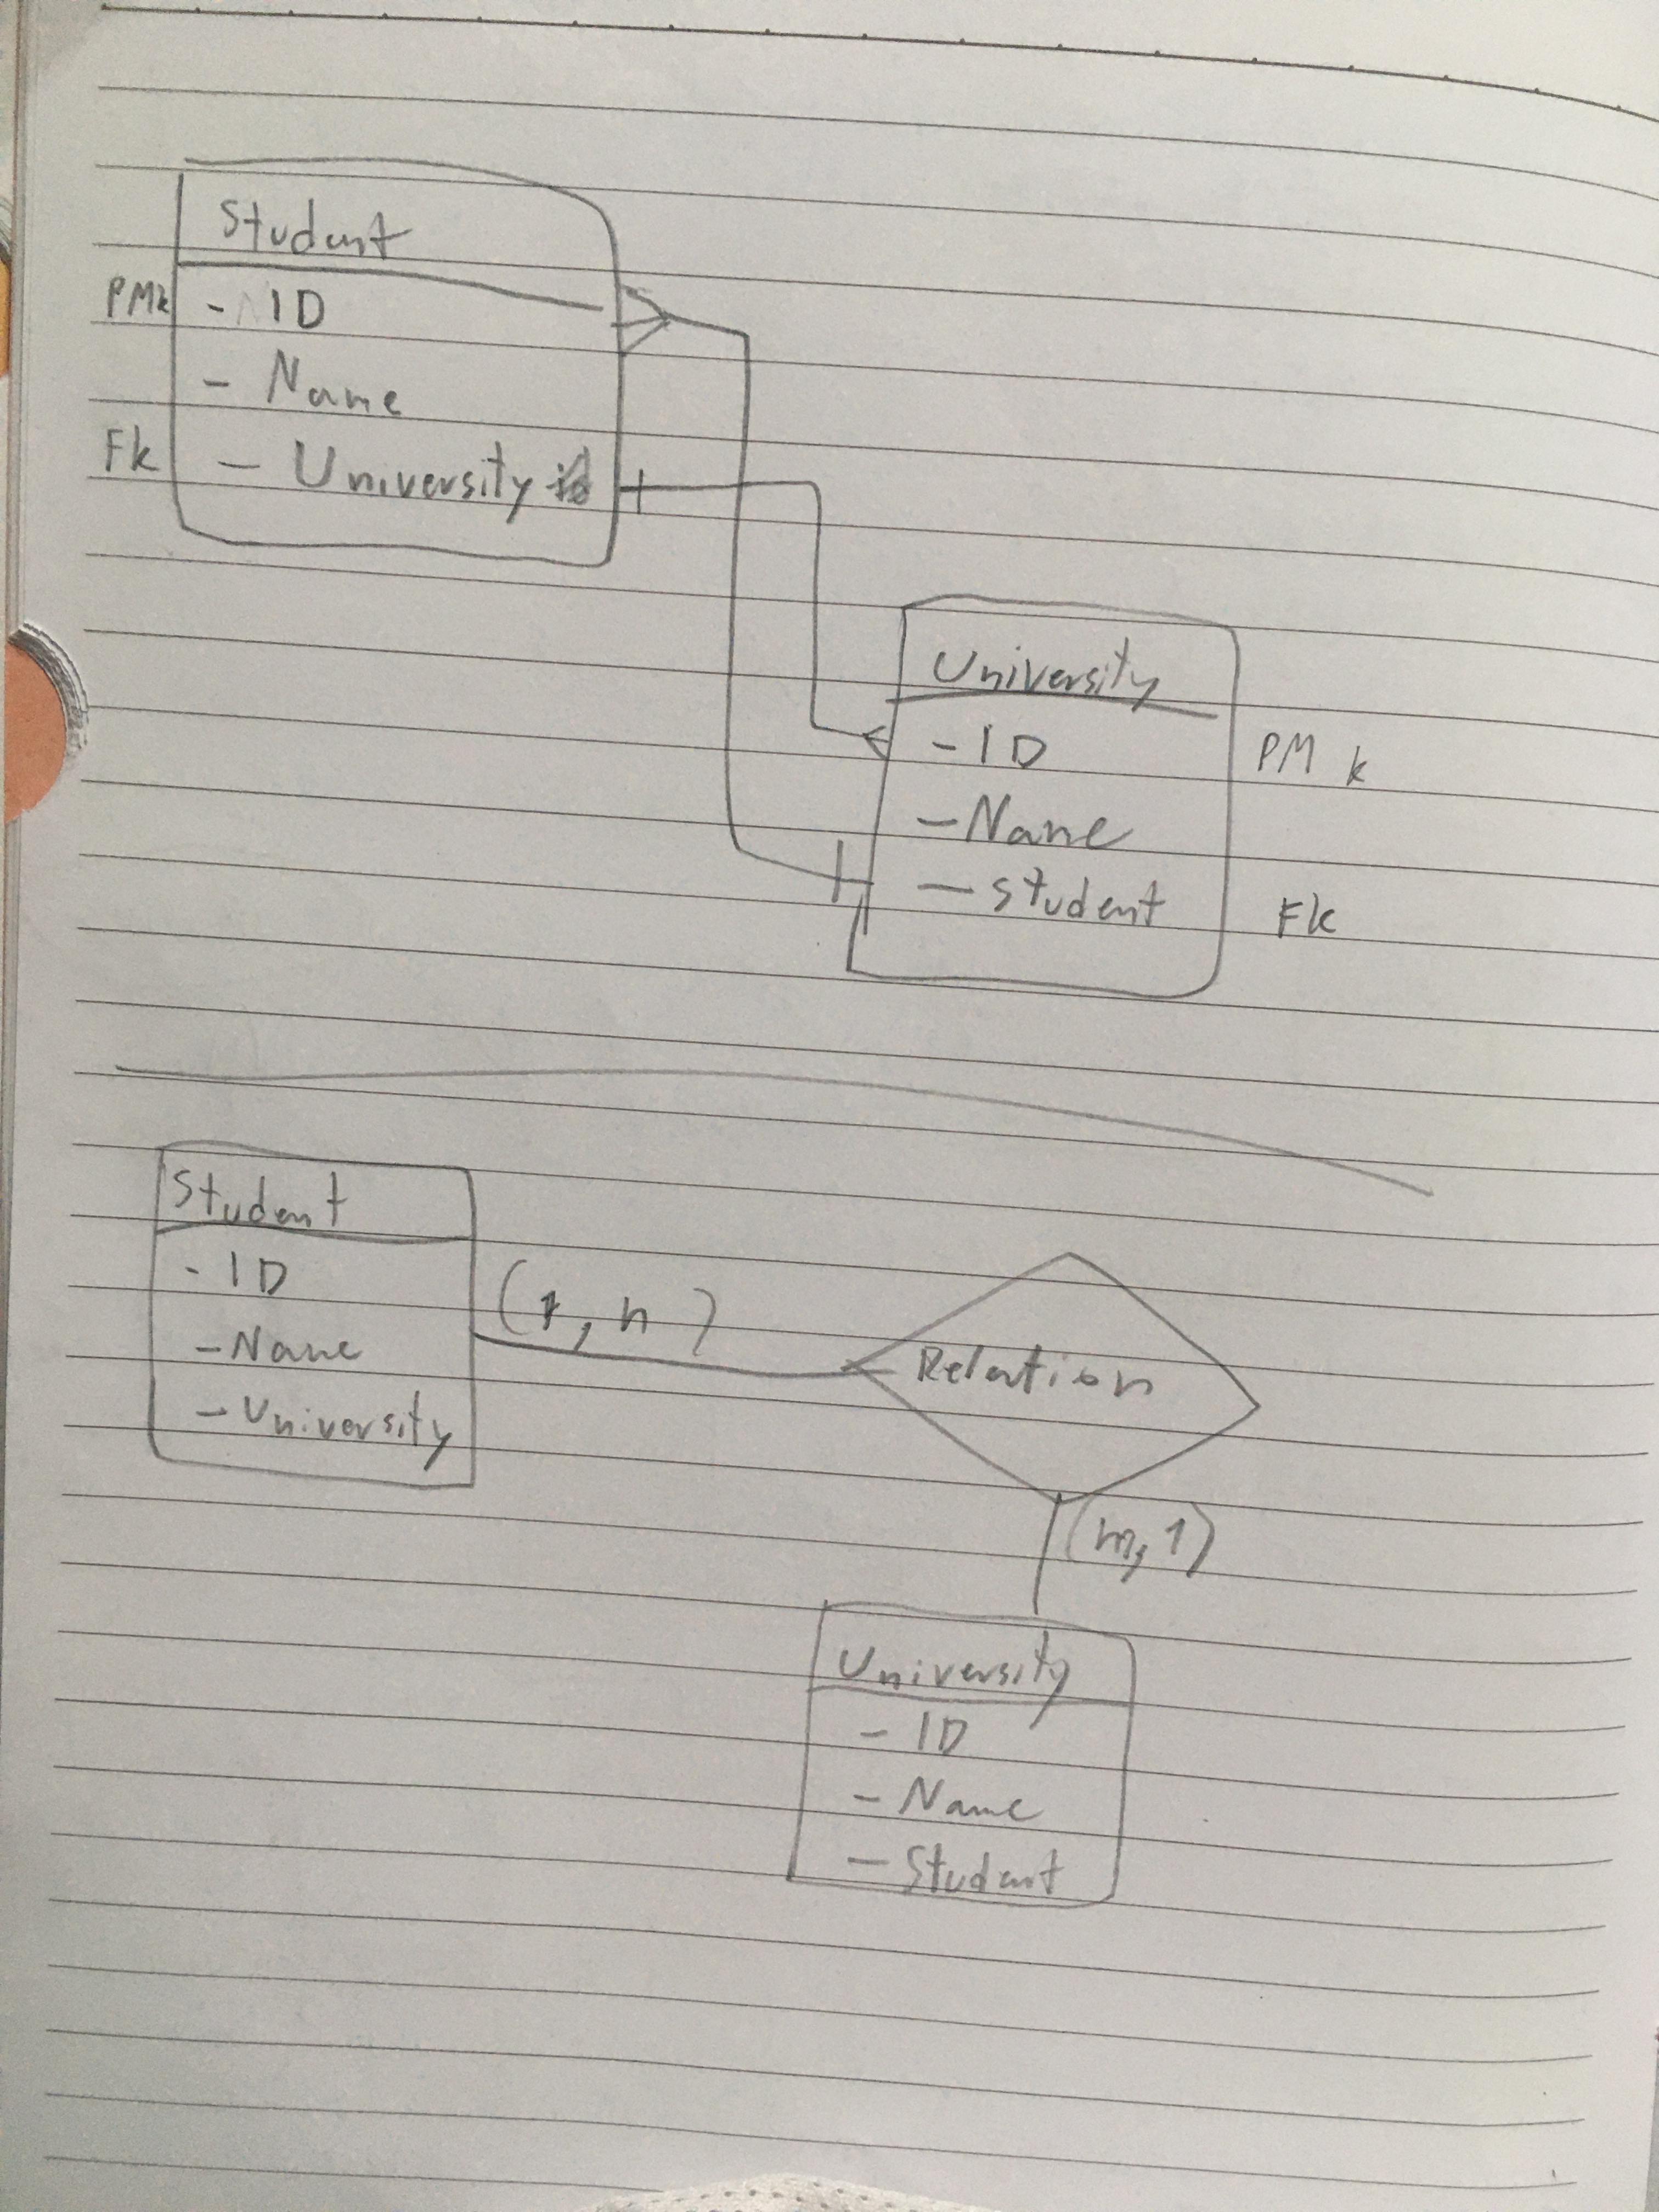 Student
PMk - ID
- Name
Fk - University
University
- ID PM k
- Name
- student Fk
Student
- ID
- Name
- University
(1, n)
Relation
(m, 1)
University
- ID
- Name
- Student